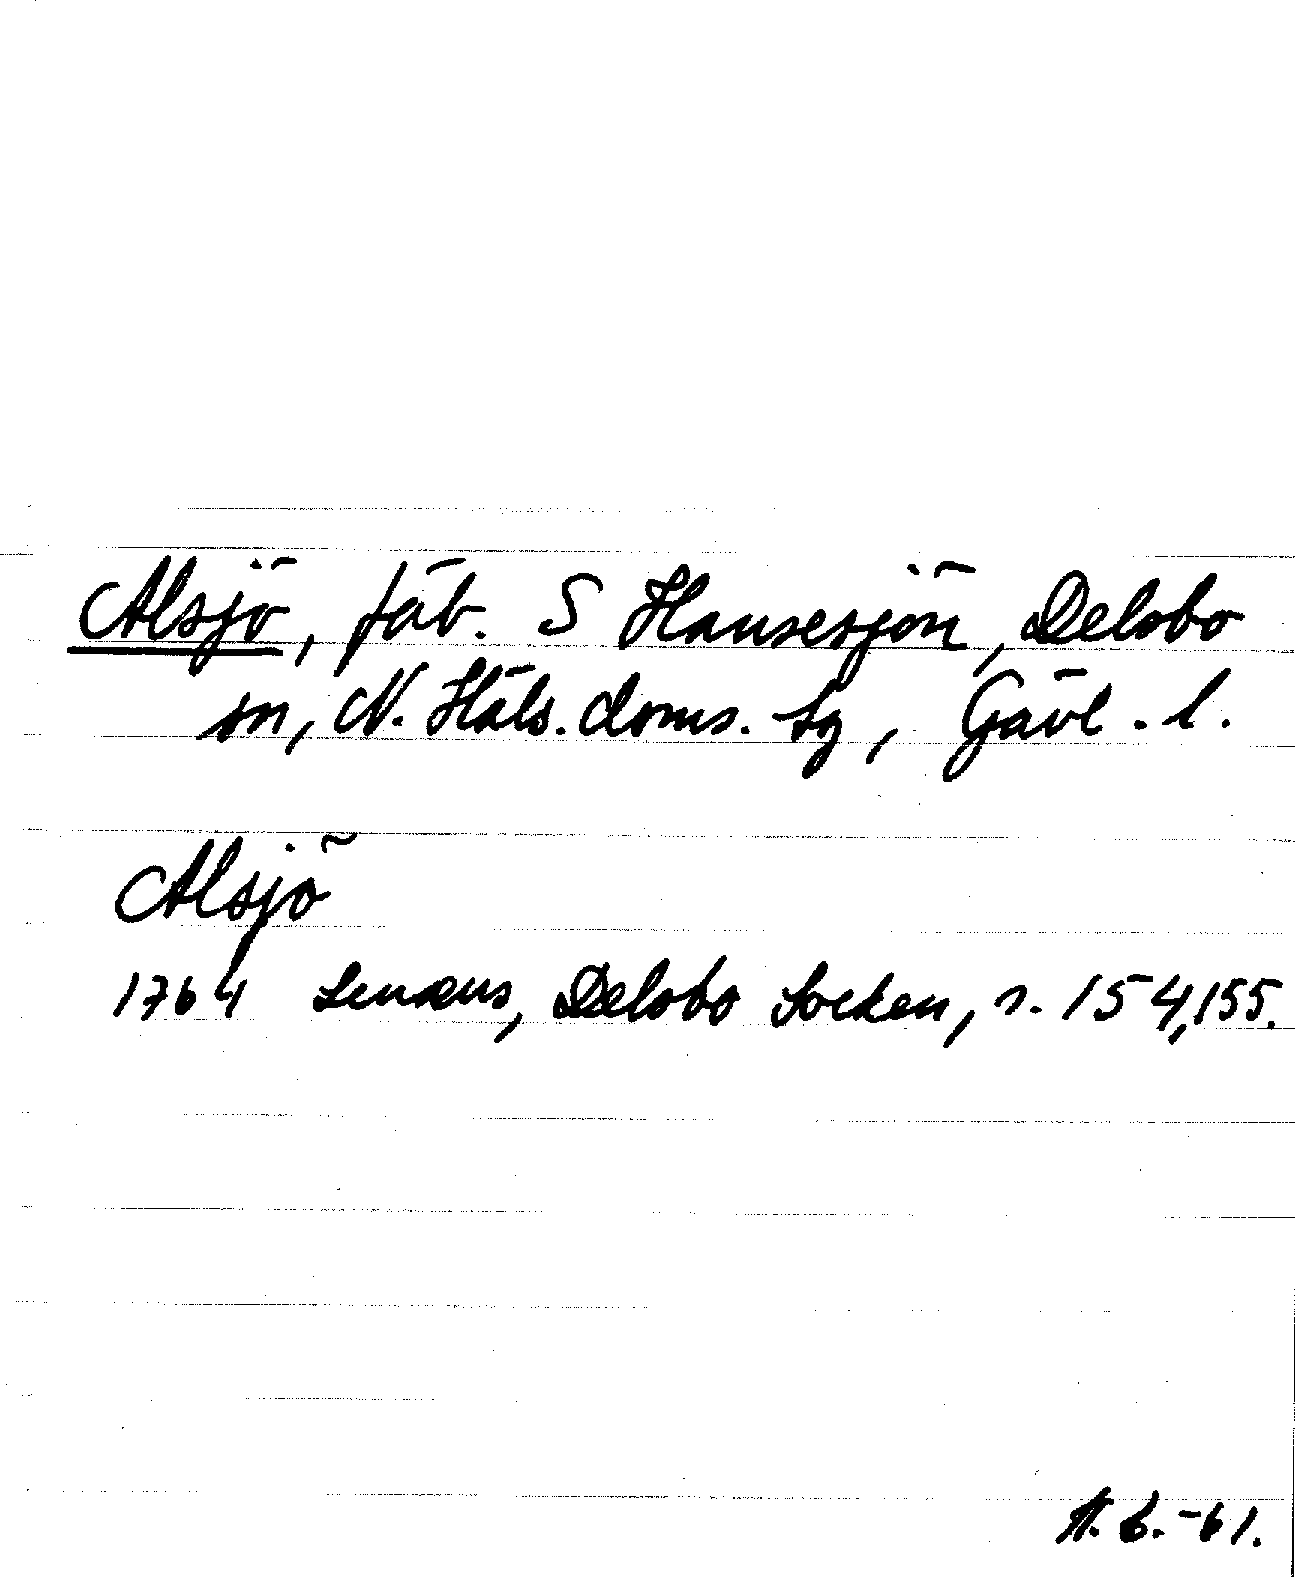 Alsjö, fäb. S Hansesjön, Delsbo
sn, N. Häls. doms. sg, Gävl. l.
Alsjö
1764 Lenæus, Delsbo Socken, s. 154, 155.
-61.